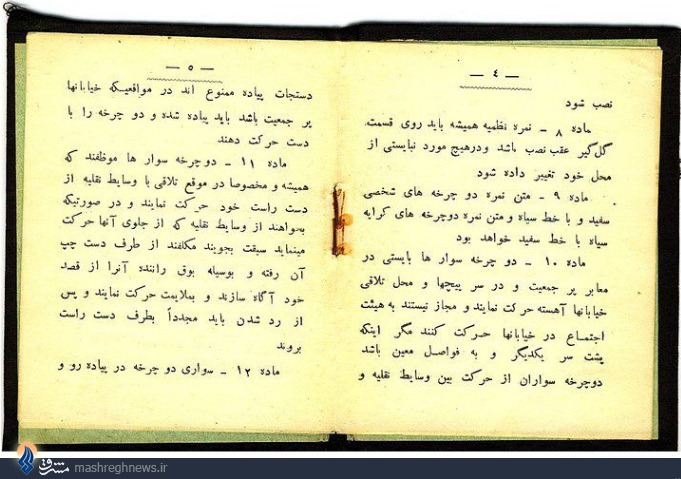 — ٤ —
نصب شود
ماده ۸ ـ نمره نظمیه همیشه باید روی قسمت
گل گیر عقب نصب باشد ودرهیچ مورد نبایستی از
محل خود تغییر داده شود
ماده ۹ ـ متن نمره دو چرخه های شخصی
سفید و با خط سیاه و متن نمره دوچرخه های کرایه
سیاه با خط سفید خواهد بود
ماده ۱۰ ـ دو چرخه سوار ها بایستی در
معابر پر جمعیت و در سر پیچها و محل تلاقی
خیابانها آهسته حرکت نمایند و مجاز نیستند به هیئت
اجتماع در خیابانها حرکت کنند مگر اینکه
پشت سر یکدیگر و به فواصل معین باشد
دوچرخه سواران از حرکت بین وسایط نقلیه و
— ٥ —
دستجات پیاده ممنوع اند در مواقعیکه خیابانها
پر جمعیت باشد باید پیاده شده و دو چرخه را با
دست حرکت دهند
ماده ۱۱ ـ دو چرخه سوار ها موظفند که
همیشه و مخصوصا در موقع تلاقی با وسایط نقلیه از
دست راست خود حرکت نمایند و در صورتیکه
بخواهند از وسایط نقلیه که از جلوی آنها حرکت
مینماید سبقت بجویند مکلفند از طرف دست چپ
آن رفته و بوسیله بوق راننده آنرا از قصد
خود آگاه سازند و بملایمت حرکت نمایند و پس
از رد شدن باید مجدداً بطرف دست راست
بروند
ماده ۱۲ ـ سواری دو چرخه در پیاده رو و
مشرق mashreghnews.ir